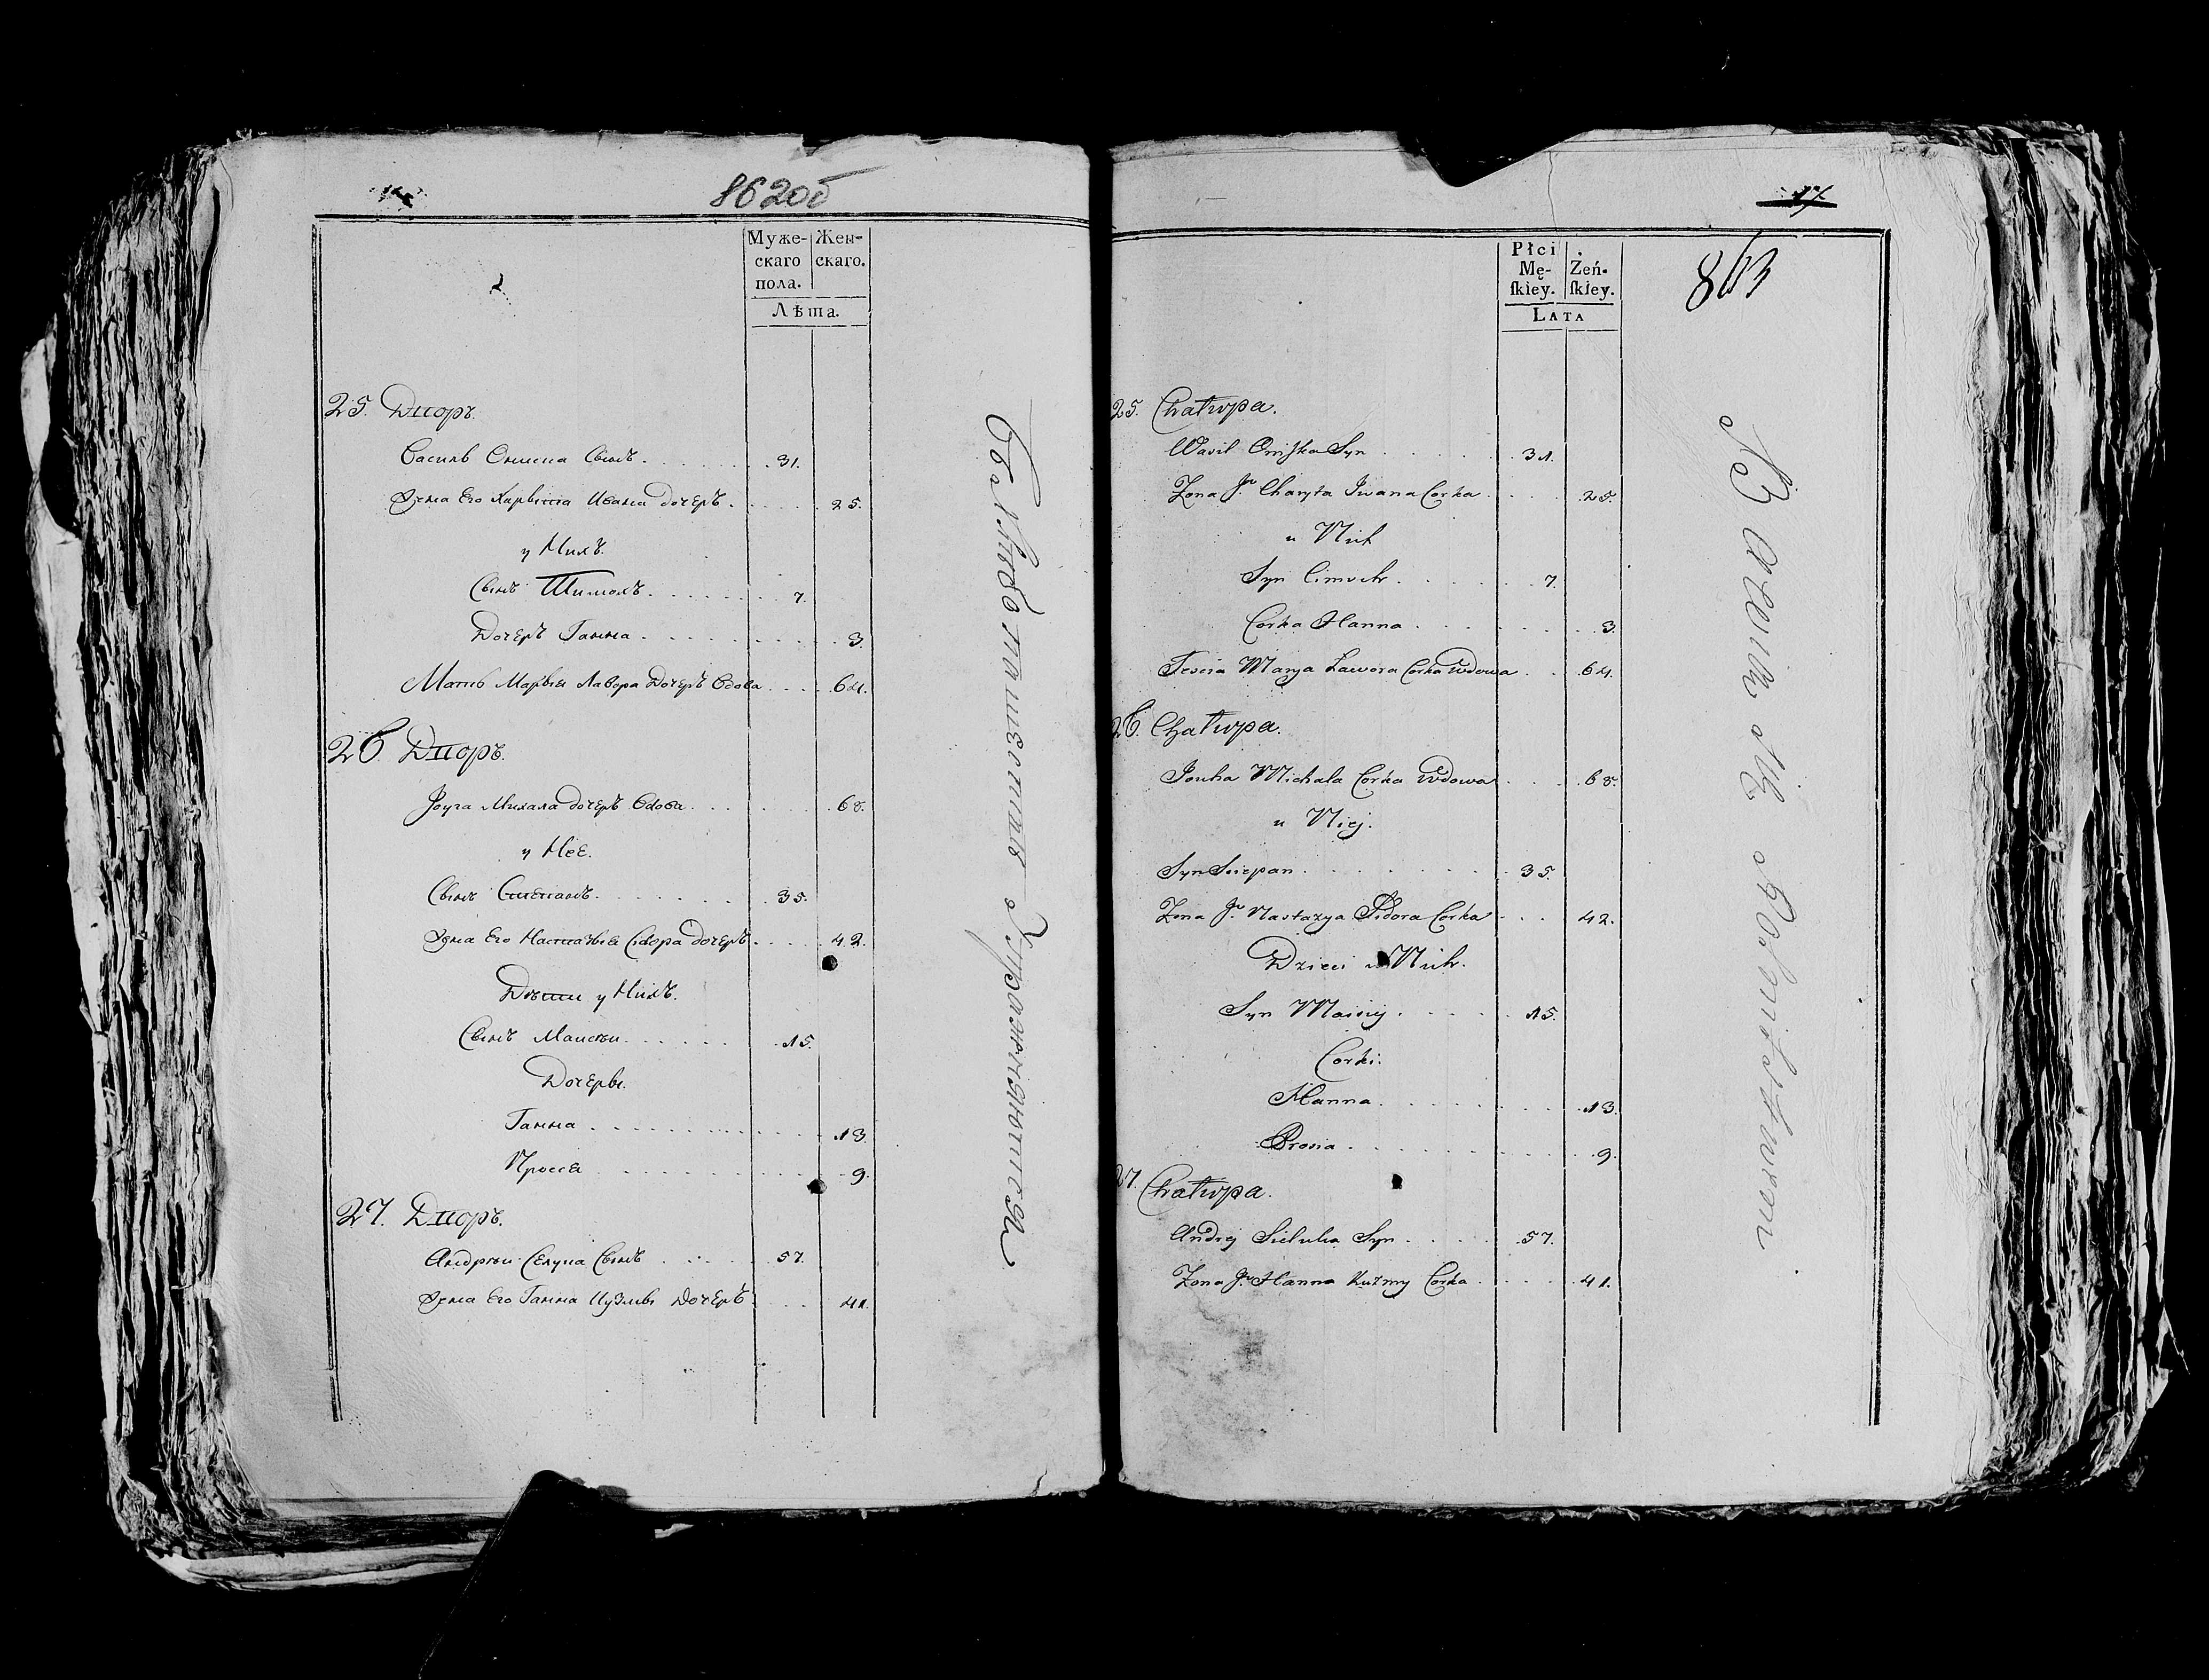 862об
Муже-
скаго
пола.
Жен-
скаго.
Лѣта.
25. Дворъ.
Василь Ониска Сынъ 31.
Жена Его Харыта Ивана дочеръ 25.
у Нихъ.
Сынъ Тимохъ 7.
Дочеръ Ганна 3.
Мать Марья Лавора Дочеръ Вдова 64.
26. Дворъ.
Михала дочеръ Вдова 68.
у Нее.
Сынъ Степанъ 35.
Жена Его Настазыя Сидора дочеръ 42.
Дѣти у Нихъ.
Сынъ Маисѣи 15.
Дочеры.
Ганна 13.
Прося 9.
27. Дворъ.
Андрѣи Сынъ 57.
Жена Его Ганна Кузмы Дочеръ 41.
17.
863
Płci
Mę-
ſkiey.
Żeń-
ſkiey.
LATA
25. Chatupa.
Wasil Oniſka Syn 31.
Zona Jº Charyta Iwana Corka 25.
u Nich
Syn Cimoch 7.
Corka Hanna 3.
Marya Ławora Corka Wdowa 64.
26. Chatupa.
Michala Corka Wdowa 68.
u Niej.
Syn Sciepan 35.
Zona Jº Nastazya Sidora Corka 42.
Dzieci u Nich.
Syn Maisiej 15.
Corki.
Hanna 13.
Prosia 9.
27. Chatupa.
Andrej Syn 57.
Zona Jº Hanna Kuzmy Corka 41.